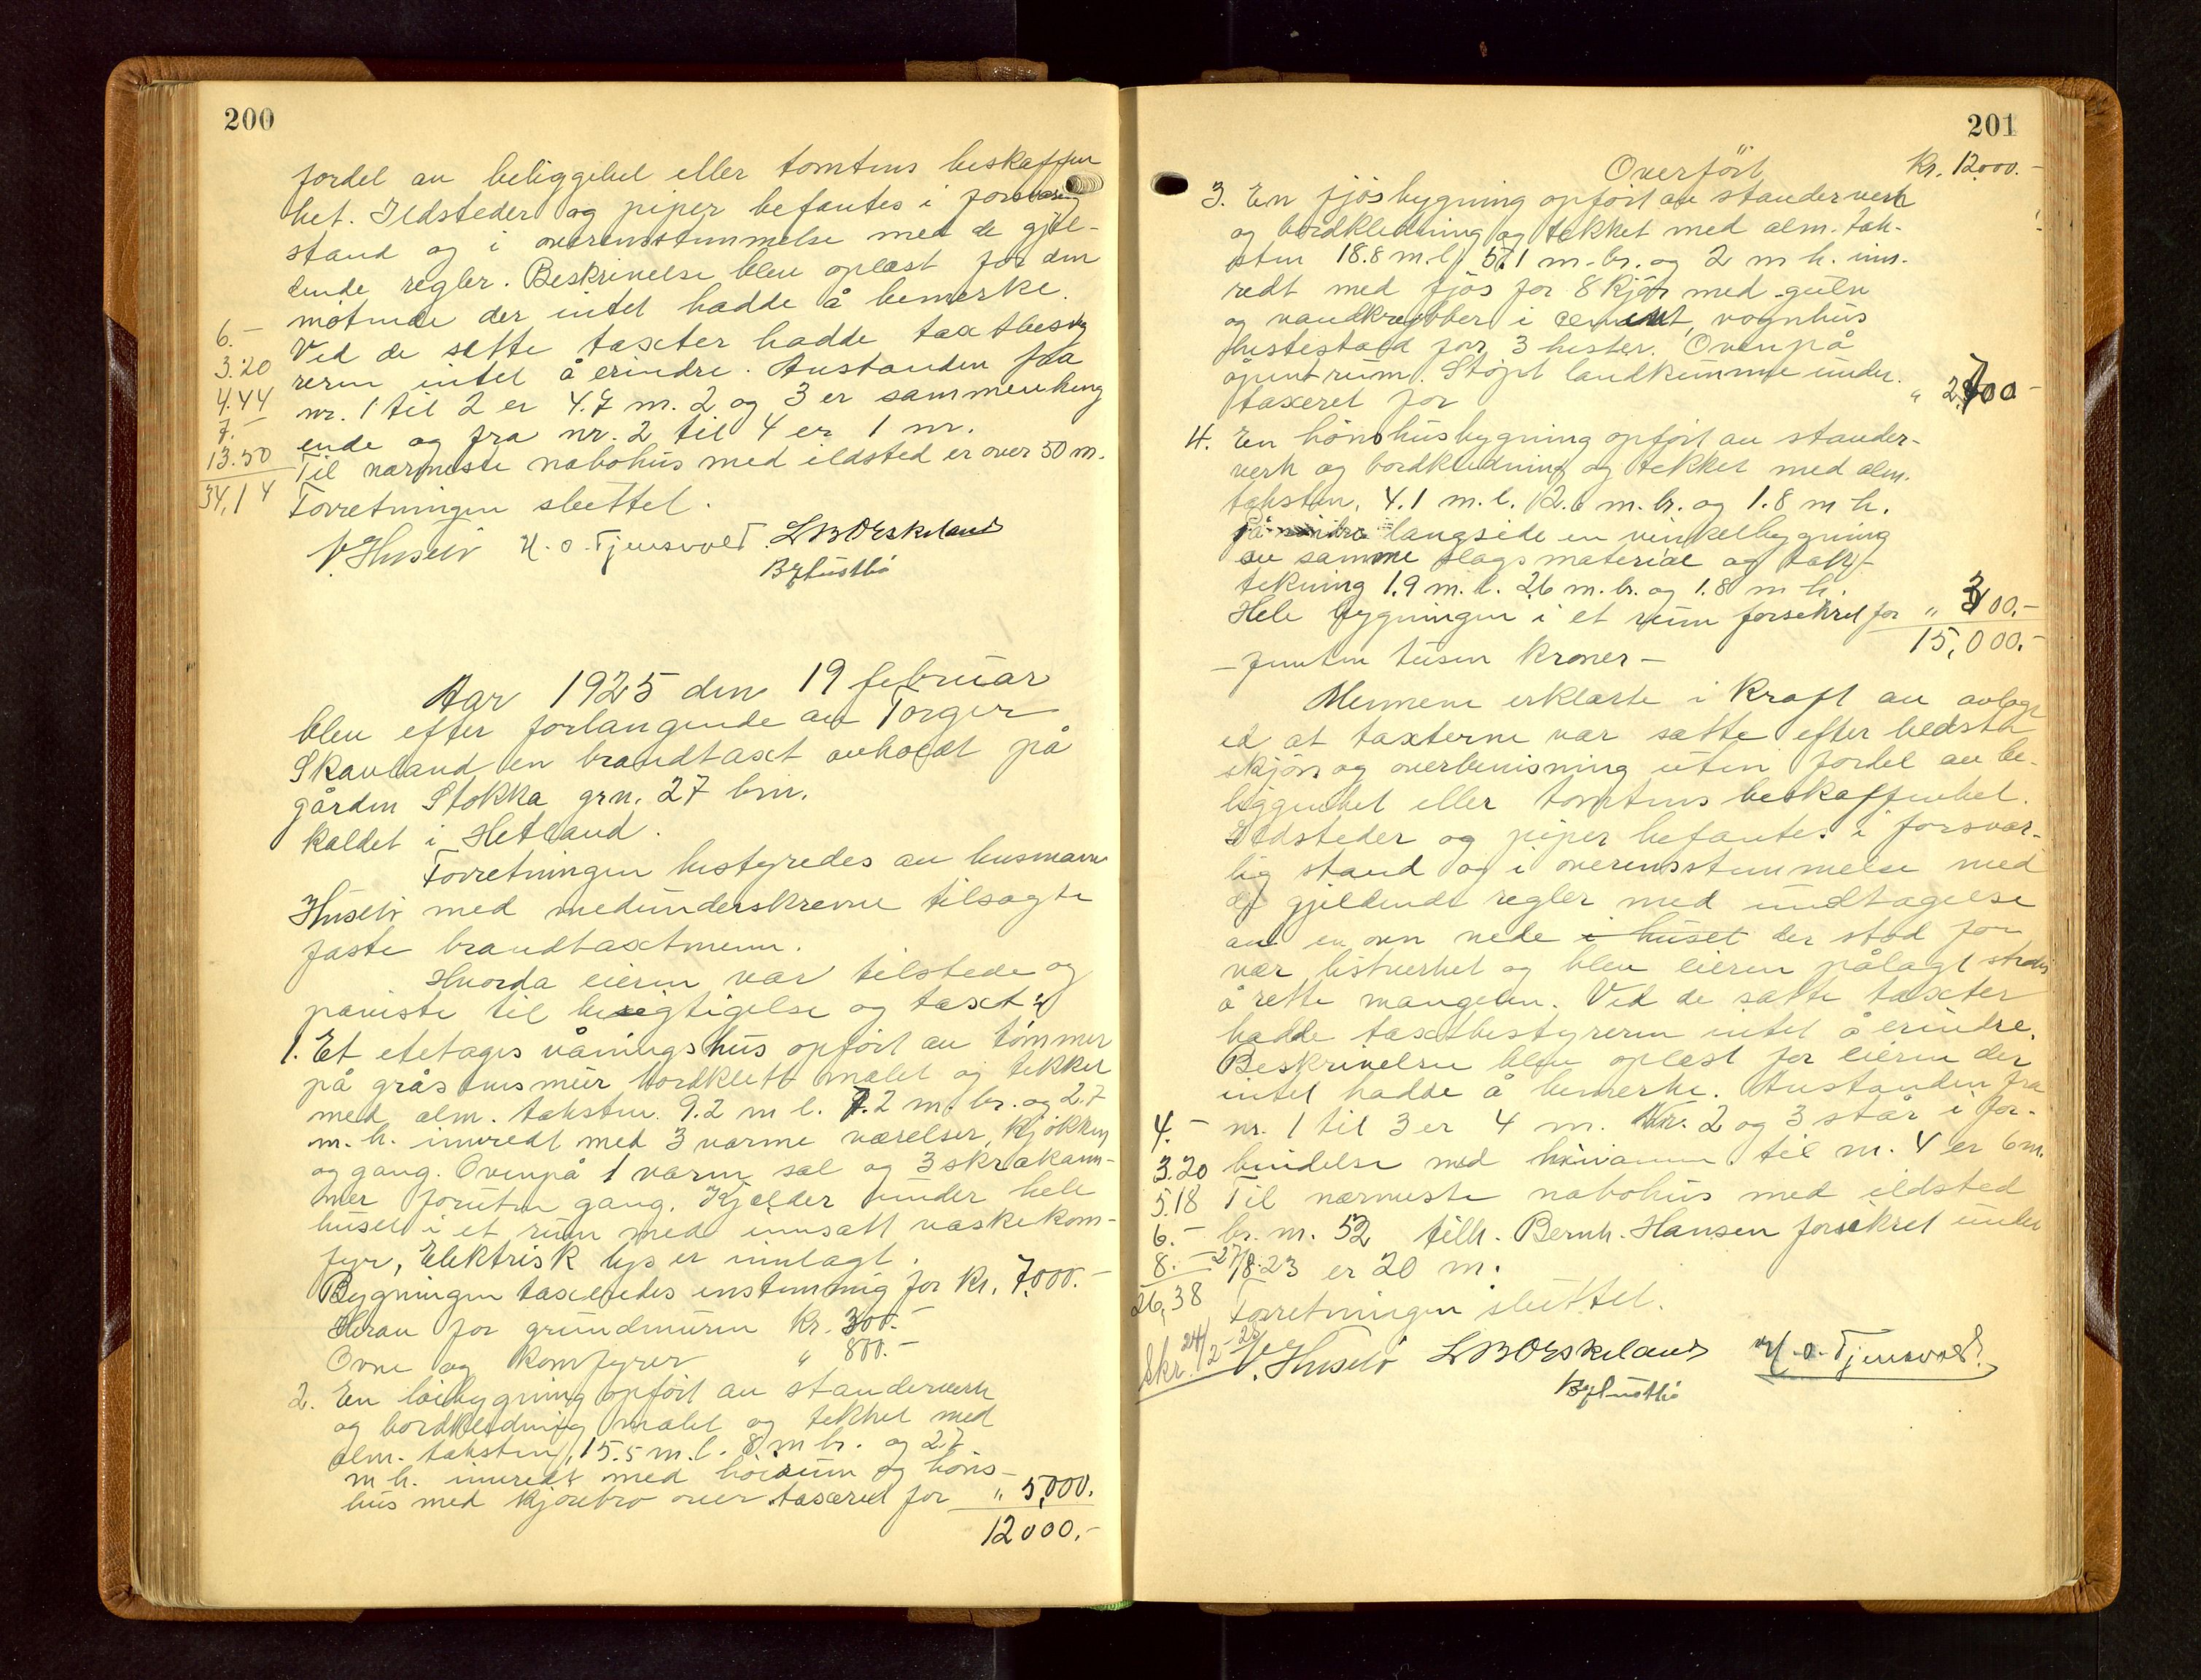 200
fordel av beliggehet eller tomtens beskaffen
het. Ildsteder og piper befantes i forsvarlig
stand og i overensstemmelse med de gjel-
dende regler. Beskrivelse blev oplæst for den
møtende der intet hadde å bemerke.
6.- Ved de sætte taxter hadde taxtbesty
3.20 reren intet å erindre. Avstanden fra
4.44 nr. 1 til 2 er 4.7 m. 2 og 3 er sammenheng
7.- ende og fra nr. 2 til 4 er 1 m.
13.50 Til nærmeste nabohus med ildsted er over 50 m.
34,14 Forretningen sluttet.
V. Husebø H. O. Tjensvold. L M Eskeland
Aar 1925 den 19 februar
blev efter forlangende av Torger
Skavland en brandtaxt avholdt på
gården Stokka grn. 27 brn.
kaldet i Hetland.
Forretningen bestyredes av lensmann
Husebø med medunderskrevne tilsagte
faste brandtaxtmenn.
Hvorda eieren var tilstede og
påviste til besigtigelse og taxt:
1. Et etetages våningshus opført av tømmer
på gråstensmur bordklett malet og tekket
med alm. taksten. 9.2 m l. 7.2 m. br. og 2.7
m. h. innredt med 3 varme værelser, kjøkken
og gang. Ovenpå 1 varm sal og 3 skråkam-
mer foruten gang. Kjælder under hele
huset i et rum med innsatt vaskekom-
fyr, Elektrisk lys er innlagt.
Bygningen taxeredes enstemmig for kr. 7.000.-
Herav for grundmuren kr. 300.-
Ovne og komfyrer " 800.-
2. En løebygning opført av standerverk
og bordkledning malet og tekket med
alm. taksten, 15.5 m. l. 8 m br. og 2.7
m h. innredt med høirum og høns-
hus med kjørebro over taxeret for " 5,000.
12000.-
201
Overført kr. 12.000.-
3. En fjøsbygning opført av standerverk
og bordkledning og tekket med alm. tak-
sten 18.8 m. l. 5.1 m. br. og 2 m h. inn-
redt med fjøs for 8 kjør med gulv
og vandkrybber i cement, vognhus
hestestald for 3 hester. Ovenpå
åpent rum. Støpt landkumme under.
taxeret for " 2.700-
4. En hønshusbygning opført av stander-
verk og bordkledning og tekket med alm.
taksten. 4.1 m. l. 2.6 m. br. og 1.8 m h.
På langside en vinkelbygning
av samme slags material og tak-
tekning 1.9 m. l. 2.6 m. br. og 1.8 m h.
Hele bygningen i et rum forsekret for " 300.-
15,000.-
- femten tusen kroner -
Mennene erklærte i kraft av avlagt
ed at taxterne var sætte efter bedste
skjøn og overbevisning uten fordel av be-
liggenhet eller tomtens beskaffenhet.
Ildsteder og piper befantes i forsvar-
lig stand og i overensstemmelse med
de gjeldende regler med undtagelse
av en ovn nede i huset der stod for
nær listverket og blev eieren pålagt straks
å rette mangelen. Ved de satte taxter
hadde taxtbestyreren intet å erindre.
Beskrivelsen blev oplest for eieren der
intet hadde å bemerke. Avstanden fra
4.- nr. 1 til 3 er 4 m. Nr. 2 og 3 står i for-
3.20 bindelse med hinannen. til nr. 4 er 6 m.
5.18 Til nærmeste nabohus med ildsted
6.- br. nr. 52 tilh. Bernh. Hansen forsikret under
8.- 27/8.23 er 20 m.
26,38 Forretningen sluttet.
Skr. 24/2-25 V. Husebø L M Eskeland H. O. Tjensvold.